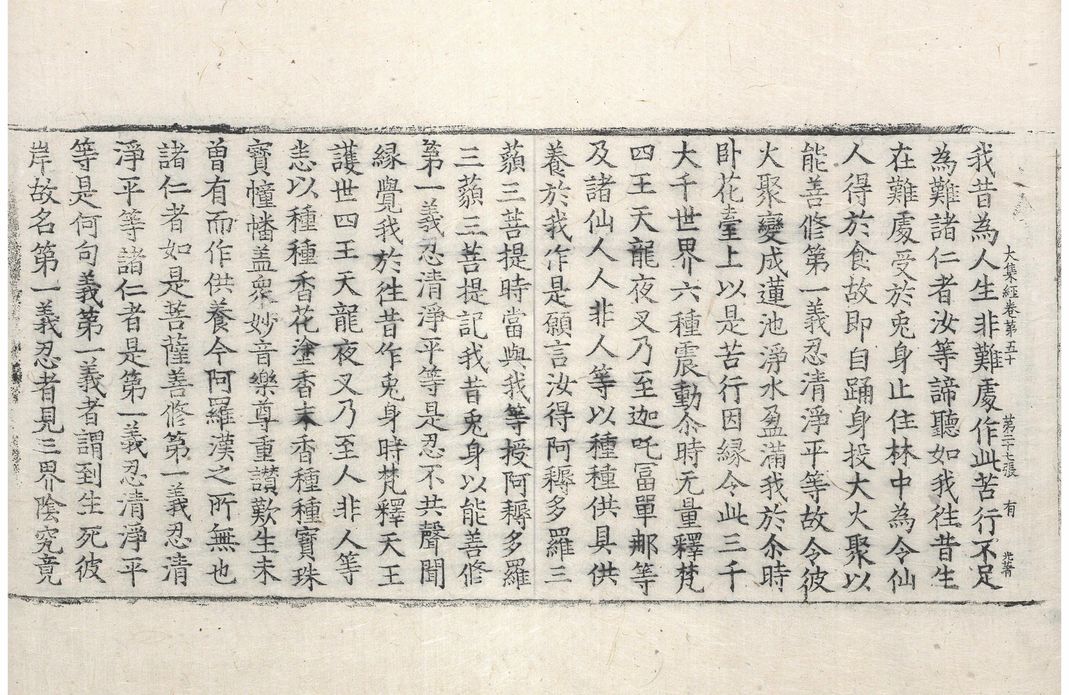 大集經卷第五十 第二十七張 有
我昔為人生非難處作此苦行不足
為難諸仁者汝等諦聽如我往昔生
在難處受於兎身止住林中為令仙
人得於食故即自踊身投大火聚以
能善修第一義忍清淨平等故令彼
火聚變成蓮池淨水盈滿我於尒時
卧花臺上以是苦行因緣令此三千
大千世界六種震動尒時无量釋梵
四王天龍夜叉乃至迦吒冨單那等
及諸仙人人非人等以種種供具供
養於我作是願言汝得阿耨多羅三
藐三菩提時當與我等授阿耨多羅
三藐三菩提記我昔兎身以能善修
第一義忍清淨平等是忍不共聲聞
緣覺我於往昔作兎身時梵釋天王
護世四王天龍夜叉乃至人非人等
悉以種種香花塗香末香種種寶珠
寶幢幡盖衆妙音樂尊重讃歎生未
曽有而作供養今阿羅漢之所無也
諸仁者如是菩薩善修第一義忍清
淨平等諸仁者是第一義忍清淨平
等是何句義第一義者謂到生死彼
岸故名第一義忍者見三界陰究竟